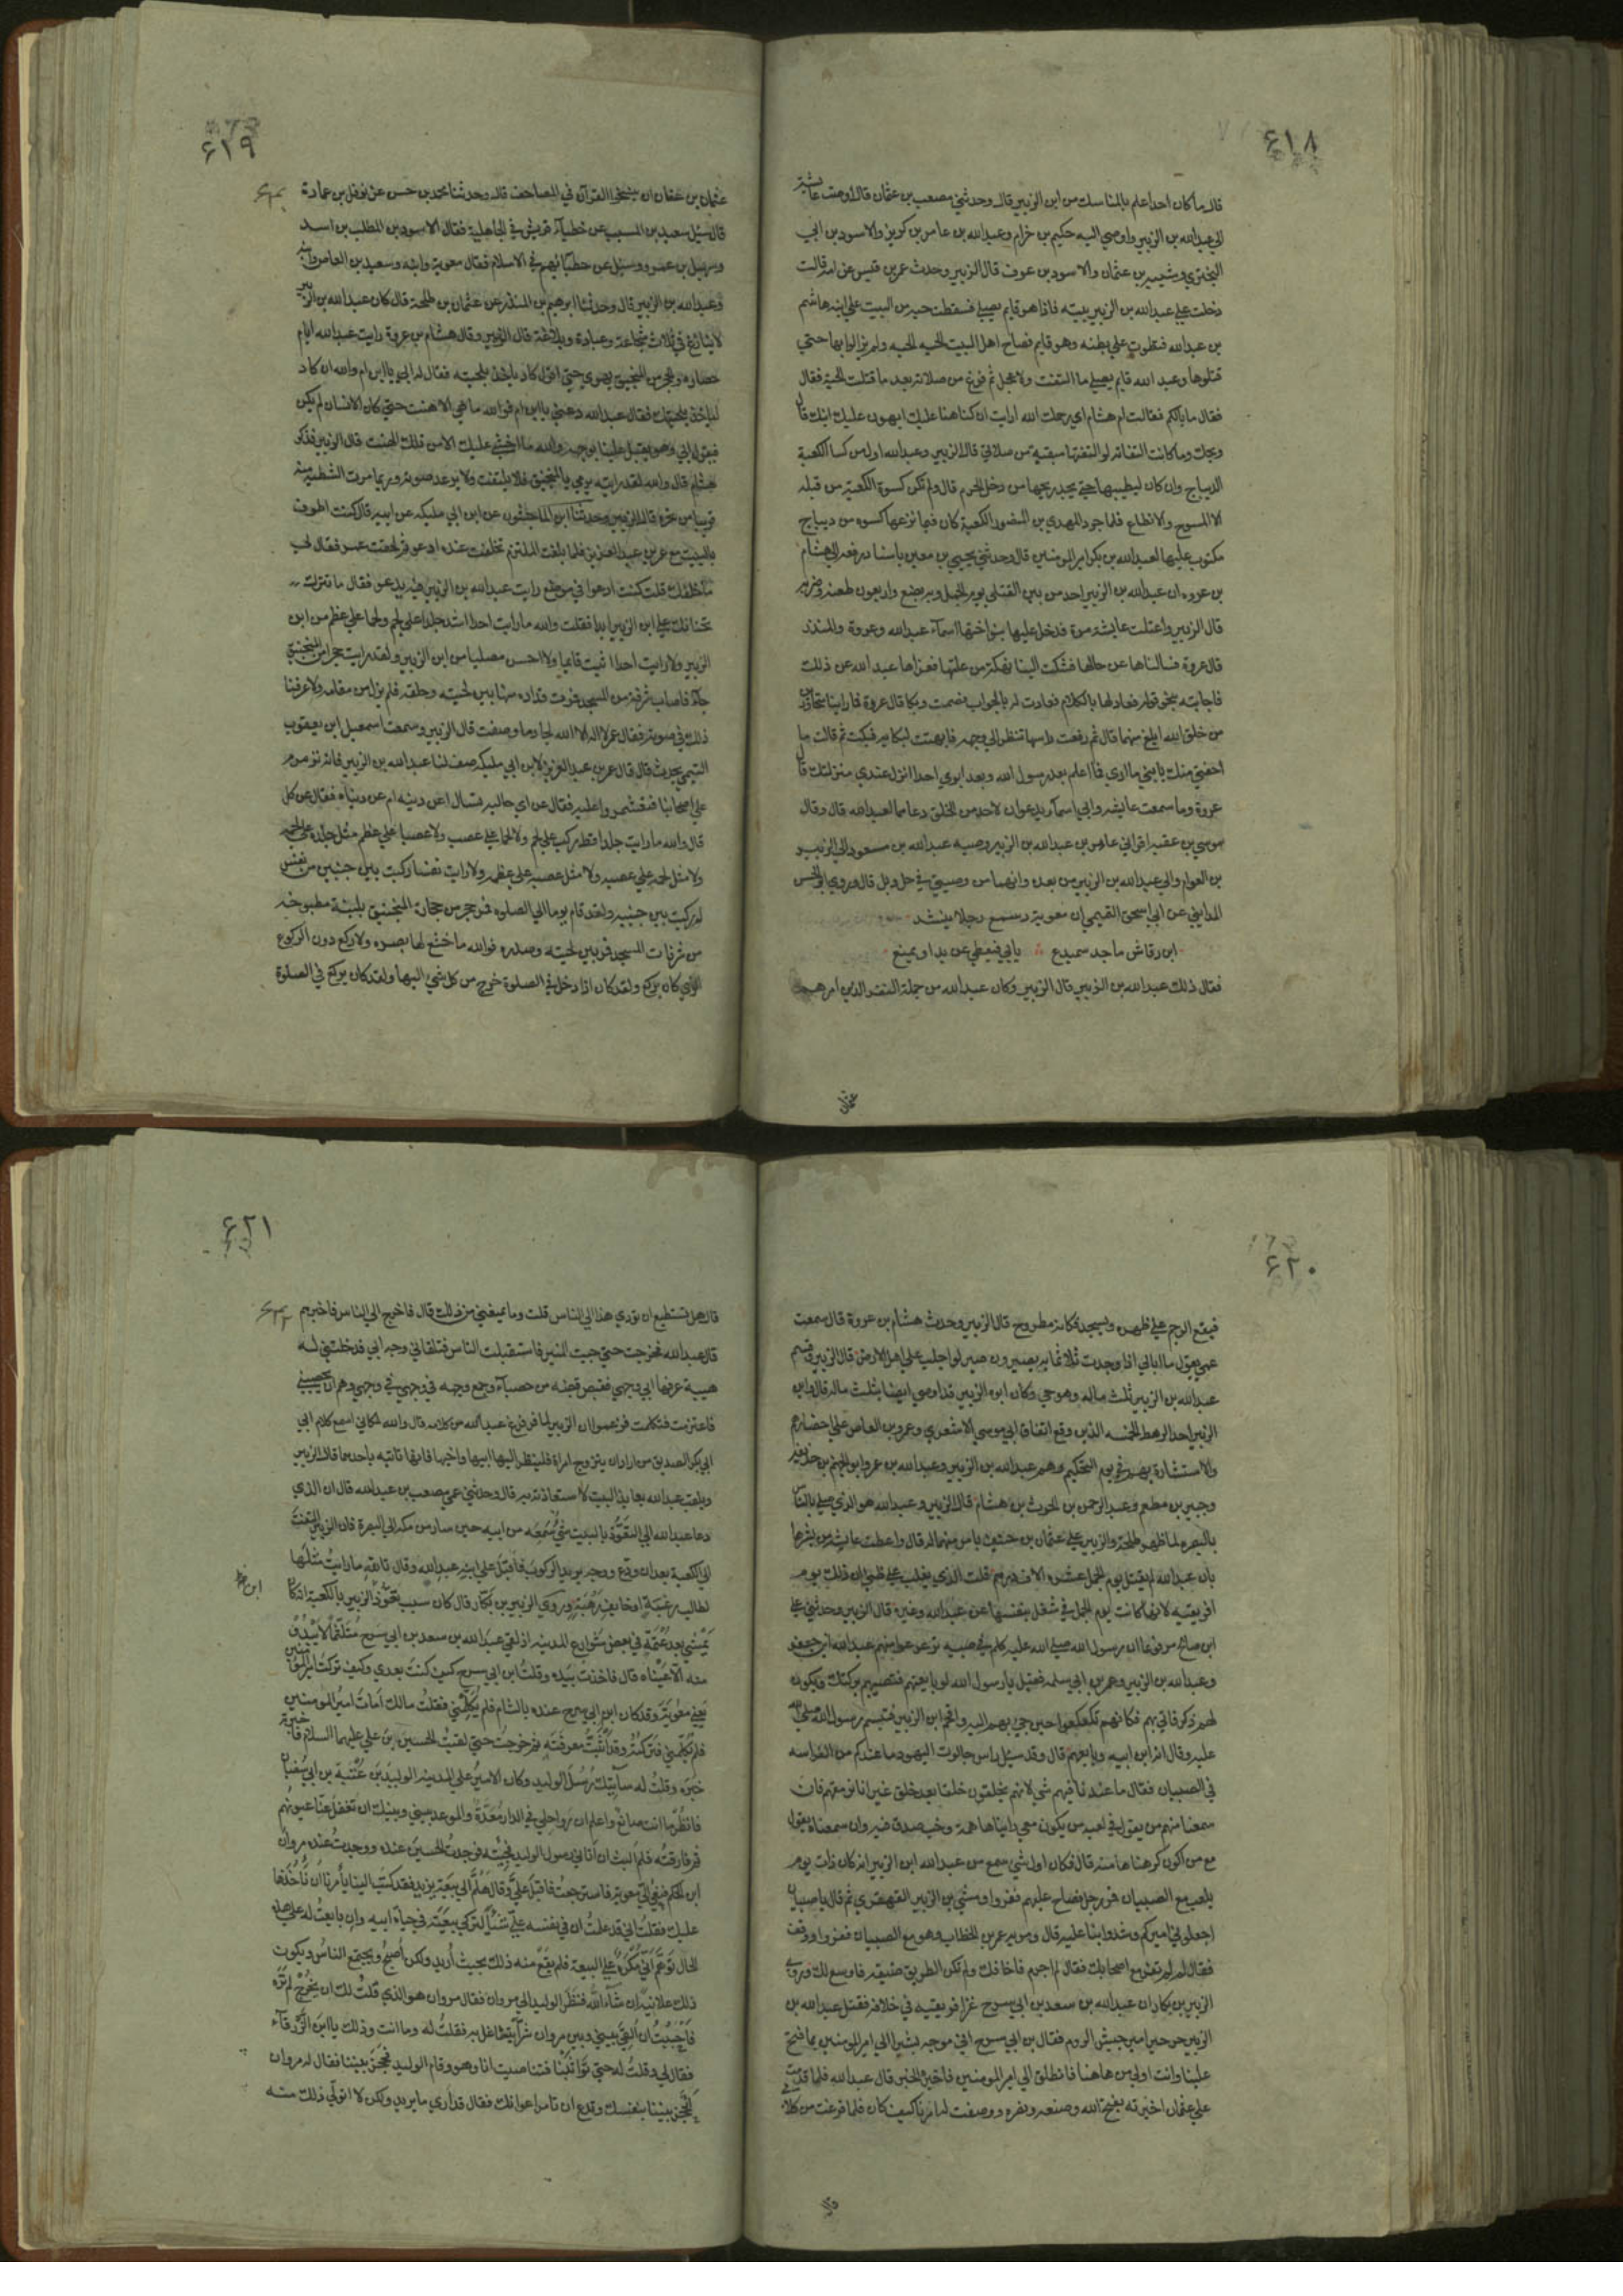 ٦١٨
قال ما كان احد اعلم بالمناسك من ابن الزبير قال وحدثني مصعب بن عثمان قال اوصت عايشة
الي عبدالله بن الزبير واوصي اليه حكيم بن خرام وعبدالله بن عامر بن كريز والاسود بن ابي
البختري وشيبه بن عثمان والاسود بن عوف قال الزبير وحدث عمر بن قيس عن امه قالت
دخلت علي عبدالله بن الزبير بيته فاذا هو قايم يصلي فسقطت حيه من البيت علي ابنه هاشم
بن عبدالله فتطوت علي بطنه وهو قايم فصاح اهل البيت الحيه الحيه ولم يزالوا بها حتي
قتلوها وعبد الله قايم يصلي ما التفت ولا عجل ثم فرغ من صلاته بعد ما قتلت الحية فقال
فقال ما بالكم فقالت ام هشام اي رحمك الله ارايت ان كنا هنا عليك ايهون عليك ابنك قال
ويحك وما كانت التفاته لو التفتها مبقية من صلاتي قال الزبير وعبدالله اول من كسا الكعبة
الديباج وان كان ليطيبها حتي يجد ريحها من دخل الحرم قال ولم تكن كسوة الكعبة من قبله
الا المسوح والانطاع فلما جرد المهدي بن المنصور الكعبة كان فيما نزعها كسوه من ديباج
مكتوب عليها لعبدالله بن بكر امير المومنين قال وحدثني يحيي بن معين باسناد رفعه الي هشام
بن عروه ان عبدالله بن الزبير اخذ من بين القتلي يوم الجمل وبه بضع واربعون طعنة وضربة
قال الزبير واعتلت عايشة مرة فدخل عليها بنو اختها اسمآء عبدالله وعروة والمنذر
قال عروة فسالناها عن حالها فشكت الينا نهكة من علتها فعزاها عبد الله عن ذلك
فاجابته بنحو قوله فعاد لها بالكلام فعادت له بالجواب فصمت وبكا قال عروة فما راينا متحاورين
من خلق الله ابلغ منهما قال ثم رفعت راسها تنظر الي وجهه فابهتت لبكايه فبكت ثم قالت ما
احقني منك يا بني ما اري فما اعلم بعد رسول الله وبعد ابوي احدا انزل عندي منزلتك قال
عروة وما سمعت عايشه وامي اسمآء يدعوان لاحد من الخلق دعاهما لعبدالله قال وقال
موسي بن عقبه اقراني عامر بن عبدالله بن الزبير وصيه عبدالله بن مسعود الي الزبير
بن العوام والي عبدالله بن الزبير من بعده وانهما من وصيتي في حل وبل قال وروي ابو الحسن
المدايني عن ابي اسحق القيمي ان معوية سمع رجلا ينشد
ابن رقاش ماجد سميدع يابي فيعطي عن يد او يمنع
فقال ذلك عبدالله بن الزبير قال الزبير وكان عبدالله من جملة النفر الذين امرهم
عثمان
٦١٩
عثمان بن عفان ان ينسخوا القرآن في المصاحف قال وحدثنا محمد بن حسن عن نوفل بن عمارة
قال سئل سعيد بن المسيب عن خطبآء قريش في الجاهلية فقال الاسود بن المطلب بن اسد
وسهيل بن عمرو وسئل عن خطبآئهم في الاسلام فقال معوية وابنه وسعيد بن العاص وابنه
وعبدالله بن الزبير قال وحدثنا ابرهيم بن المنذر عن عثمان بن طلحة قال كان عبدالله بن الزبير
لا ينازع في ثلاث شجاعة وعبادة وبلاغة قال الزبير وقال هشام بن عروة رايت عبدالله ايام
حصاره والحجر من المنجنيق يهوي حتي اقول كاد ياخذ بلحيته فقال له ابي يا ابن ام والله ان كاد
لياخذ بلحيتك فقال عبدالله دعني يا ابن ام فوالله ما هي الا هنت حتي كان الانسان لم يكن
فيقول ابي وهو يقبل علينا بوجهه والله ما اخشي عليك الا من تلك الهنت قال الزبير فذكر
هشام قال والله لقد رايته يرمي بالمنجنيق فلا يلتفت ولا يرعد صوته وربما مرت الشظية منه
قريبا من نحره قال الزبير وحدثنا ابن الماجشون عن ابن ابي مليكه عن ابيه قال كنت اطوف
بالبيت مع عمر بن عبدالعزيز فلما بلغت الملتزم تخلفت عنده ادعو ثم لحقت عمر فقال لي
ما خلفك قلت كنت ادعوا في موضع رايت عبدالله بن الزبير فيه يدعو فقال ما تترك
تحنانك علي ابن الزبير ابدا فقلت والله ما رايت احدا اشد جلدا علي لحم ولحما علي عظم من ابن
الزبير ولا رايت احدا اثبت قايما ولا احسن مصليا من ابن الزبير ولقد رايت حجرا من المنجنيق
جآء فاصاب شرفة من المسجد فمرت قذاه منها بين لحيته وحلقه فلم يزل من مقامه ولا عرفنا
ذلك في صوته فقال عمر لا اله الا الله لجاد ما وصفت قال الزبير وسمعت اسمعيل ابن يعقوب
التيمي يحدث قال قال عمر بن عبدالعزيز لابن ابي مليكه صف لنا عبدالله بن الزبير فانه ترمرم
علي اصحابنا فتغشمروا عليه فقال عن اي حاليه تسال اعن دينه ام عن دنياه فقال عن كل
قال والله ما رايت جلدا قط ركب علي لحم ولا لحما علي عصب ولا عصبا علي عظم مثل جلده علي لحمه
ولا مثل لحمه علي عصبه ولا مثل عصبه علي عظمه ولا رايت نفسا ركبت بين جنبين من نفس
له ركبت بين جنبيه ولقد قام يوما الي الصلوه فمر حجر من حجارة المنجنيق بلبنة مطبوخه
من شرفات المسجد فمر بين لحيته وصدره فوالله ما خشع لها بصره ولا ركع دون الركوع
الذي كان يركع ولقد كان اذا دخل في الصلوة خرج من كل شي اليها ولقد كان يركع في الصلوة
٦٢٠
فيقع الرخم علي ظهره ويسجد فكانه مطروح قال الزبير وحدث هشام بن عروة قال سمعت
عمي يقول ما ابالي اذا وجدت ثلاثمايه يصبرون صبري لو اجلب علي اهل الارض قال الزبير وقسم
عبدالله بن الزبير ثلث ماله وهو حي وكان ابوه الزبير قد اوصي ايضا بثلث ماله قال وابن
الزبير احد الرهط الخمسه الذين وقع اتفاق ابي موسي الاشعري وعمرو بن العاص علي احضارهم
والاستشارة بهم في يوم التحكيم وهم عبدالله بن الزبير وعبدالله بن عمر وابو الجهم بن حذيفه
وجبير بن مطعم وعبد الرحمن بن الحرث بن هشام قال الزبير وعبدالله هو الذي صلي بالناس
بالبصره لما ظهر طلحة والزبير علي عثمان بن حنيف بامر منهما له قال واعطت عايشه من بشرها
بان عبدالله لم يقتل يوم الجمل عشره الاف درهم قلت الذي يغلب علي ظني ان ذلك يوم
افريقيه لانها كانت يوم الجمل في شغل بنفسها عن عبدالله وغيره قال الزبير وحدثني علي
ابن صالح مرفوعا ان رسول الله صلي الله عليه كلم في صبيه ترعرعوا منهم عبدالله ابن جعفر
وعبدالله بن الزبير وعمر بن ابي سلمه فقيل يا رسول الله لو بايعتهم فتصيبهم بركتك ويكون
لهم ذكر فاتي بهم فكانهم تكعكعوا حين جي بهم اليه واقتحم ابن الزبير فتبسم رسول الله صلي الله
عليه وقال انه ابن ابيه وبايعهم قال وقد سئل راس جالوت اليهود ما عندكم من الفراسه
في الصبيان فقال ما عندنا فيهم شي لانهم يخلقون خلقا بعد خلق غير انا نرمقهم فان
سمعنا منهم من يقول في لعبه من يكون معي رايناها همة وخبر صدق فيه وان سمعناه يقول
مع من اكون كرهناها منه قال فكان اول شي سمع من عبدالله ابن الزبير انه كان ذات يوم
يلعب مع الصبيان فمر رجل فصاح عليهم ففروا ومشي بن الزبير القهقري ثم قال يا صبيان
اجعلوني اميركم وشدوا بنا عليه قال ومر به عمر بن الخطاب وهو مع الصبيان ففروا ووقف
فقال له لم لم تفر مع اصحابك فقال لم اجرم فاخافك ولم تكن الطريق ضيقه فاوسع لك وروي
الزبير بن بكار ان عبدالله بن سعد بن ابي سرح غزا افريقيه في خلافه فقتل عبدالله بن
الزبير جرجير امير جيش الروم فقال بن ابي سرح اني موجه بشيرا الي امير المومنين بما فتح
علينا وانت اولي من هاهنا فانطلق الي امير المومنين فاخبره الخبر قال عبدالله فلما قدمت
علي عثمان اخبرته بفتح الله وصنعه ونصره ووصفت له امرنا كيف كان فلما فرغت من كلامي
قال
٦٢١
قال هل تستطيع ان تؤدي هذا الي الناس قلت وما يمنعني من ذلك قال فاخرج الي الناس فاخبرهم
قال عبدالله فخرجت حتي جيت المنبر فاستقبلت الناس فتلقاني وجه ابي فدخلتني له
هيبة عرفها ابي في وجهي فقبض قبضه من حصبآء وجمع وجهه في وجهي وهم ان يحصبني
فاعتزمت فتكلمت فزعموا ان الزبير لما فرغ عبدالله من كلامه قال والله لكاني اسمع كلام ابي
ابي بكر الصديق من اراد ان يتزوج امراة فلينظر الي ابيها واخيها فانها تاتيه باحدهما قال الزبير
ويلقب عبدالله بعايذ البيت لاستعاذته به قال وحدثني عمي مصعب بن عبدالله قال ان الذي
دعا عبدالله الي التعوذ بالبيت شيٌ سمعه من ابيه حين سار من مكه الي البصرة فان الزبير التفت
الي الكعبة بعد ان ودع ووجه يريد الركوب فاقبل علي ابنه عبدالله وقال تالله ما رايت مثلها
لطالب رغبة او خايف رهبة وروي الزبير بن بكار قال كان سبب تعوذ ابن الزبير بالكعبة انه كان
يمشي بعد عتمة في بعض شوارع المدينه اذ لقي عبدالله بن سعد بن ابي سرح متلثما لا يبدو
منه الا عيناه قال فاخذت بيده وقلت ابن ابي سرح كيف كنت بعدي وكيف تركت امير المومنين
يعني معوية وقد كان ابن ابي سرح عنده بالشام فلم يكلمني فقلت مالك امات امير المومنين
فلم يكلمني فتركته وقد اثبت معرفته ثم خرجت حتي لقيت الحسين بن علي عليهما السلام فاخبرته
خبره وقلت له ستاتيك رسل الوليد وكان الامير علي المدينه الوليد بن عتبة بن ابي سفيان
فانظر ما انت صانع واعلم ان رواحلي في الدار معدة والموعد بيني وبينك ان تغفل عنا عيونهم
ثم فارقته فلم البث ان اتاني رسول الوليد فجيته فوجدت الحسين عنده ووجدت عنده مروان
ابن الحكم فنعي الي معوية فاسترجعت فاقبل علي وقال هلم الي بيعة يزيد فقد كتب الينا يامرنا ان ناخذها
عليك فقلت اني قد علمت ان في نفسه علي شيئا لتركي بيعته في حياة ابيه وان بايعت له علي هذه
الحال توهم اني مكره علي البيعة فلم يقع منه ذلك بحيث اريد ولكن اصبح ويجتمع الناس ويكون
ذلك علانية ان شآء الله فنظر الوليد الي مروان فقال مروان هو الذي قلت لك ان يخرج لم تره
فاحببت ان القي بيني وبين مروان شرا يتشاغل به فقلت له وما انت وذلك يا ابن الزرقآء
فقال لي وقلت له حتي تواثبنا فتناصيت انا وهو وقام الوليد فحجز بيننا فقال له مروان
اتحجز بيننا بنفسك وتدع ان تامر اعوانك فقال قد اري ما يريد ولكن لا اتولي ذلك منه